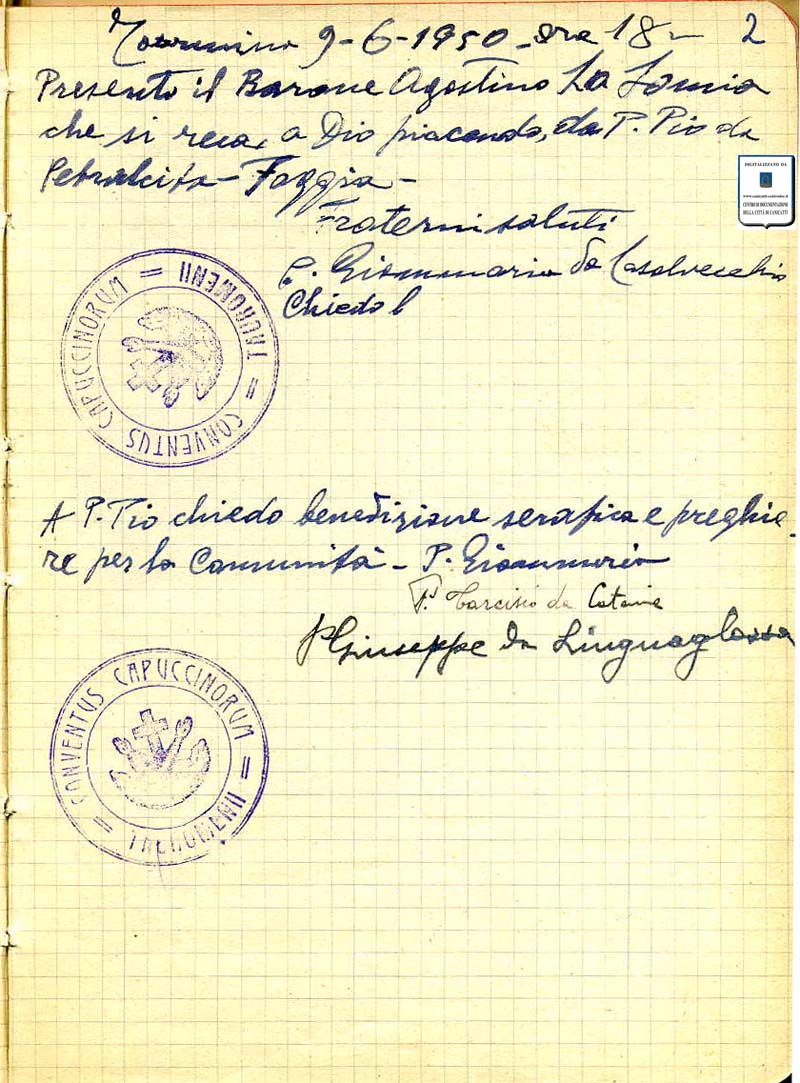 Taormina 9-6-1950 - ore 18 - 2
Presento il Barone Agostino La Lomia
che si reca, a Dio piacendo, da P. Pio da
Petralcita - Foggia -
Fraterni saluti
P. Giammaria da Casalvecchio
Chiedo l
CONVENTUS CAPUCCINORUM = TAUROMENII =
DIGITALIZZATO DA
CENTRO DI DOCUMENTAZIONE
DELLA CITTÀ DI CANICATTÌ
A P. Pio chiedo benedizione serafica e preghie-
re per la Comunità - P. Giammaria
P. Tarcisio da Catania
P Giuseppe da Linguaglossa
= CONVENTUS CAPUCCINORUM = TAUROMENII